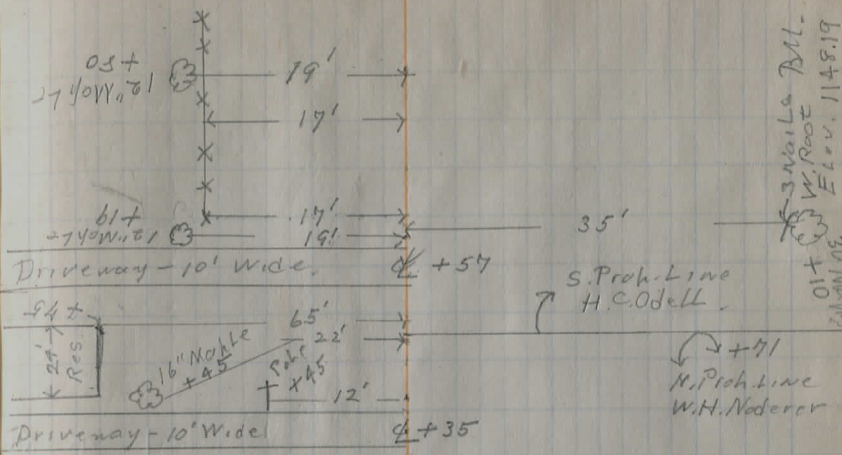 +50
12" Maple
19'
17'
3 Nails B.M.
W. Root
Elev. 1148.19
+19
12" Maple
17'
19'
35'
+10
Driveway - 10' Wide.
℄ +57
S. Prop. Line
H.C. Odell.
65'
22'
24'
Res.
16" Maple
+45
Pole
+45
12'
+71
N. Prop. Line
W.H. Noderer
Driveway - 10' Wide
℄ +35